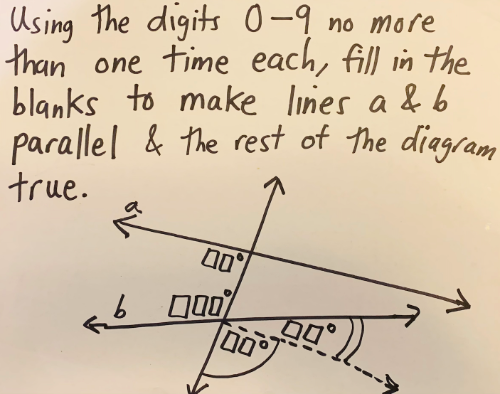 Using the digits 0-9 no more
than one time each, fill in the
blanks to make lines a & b
parallel & the rest of the diagram
true.
a
□□°
b
□□□°
□□°
□□°